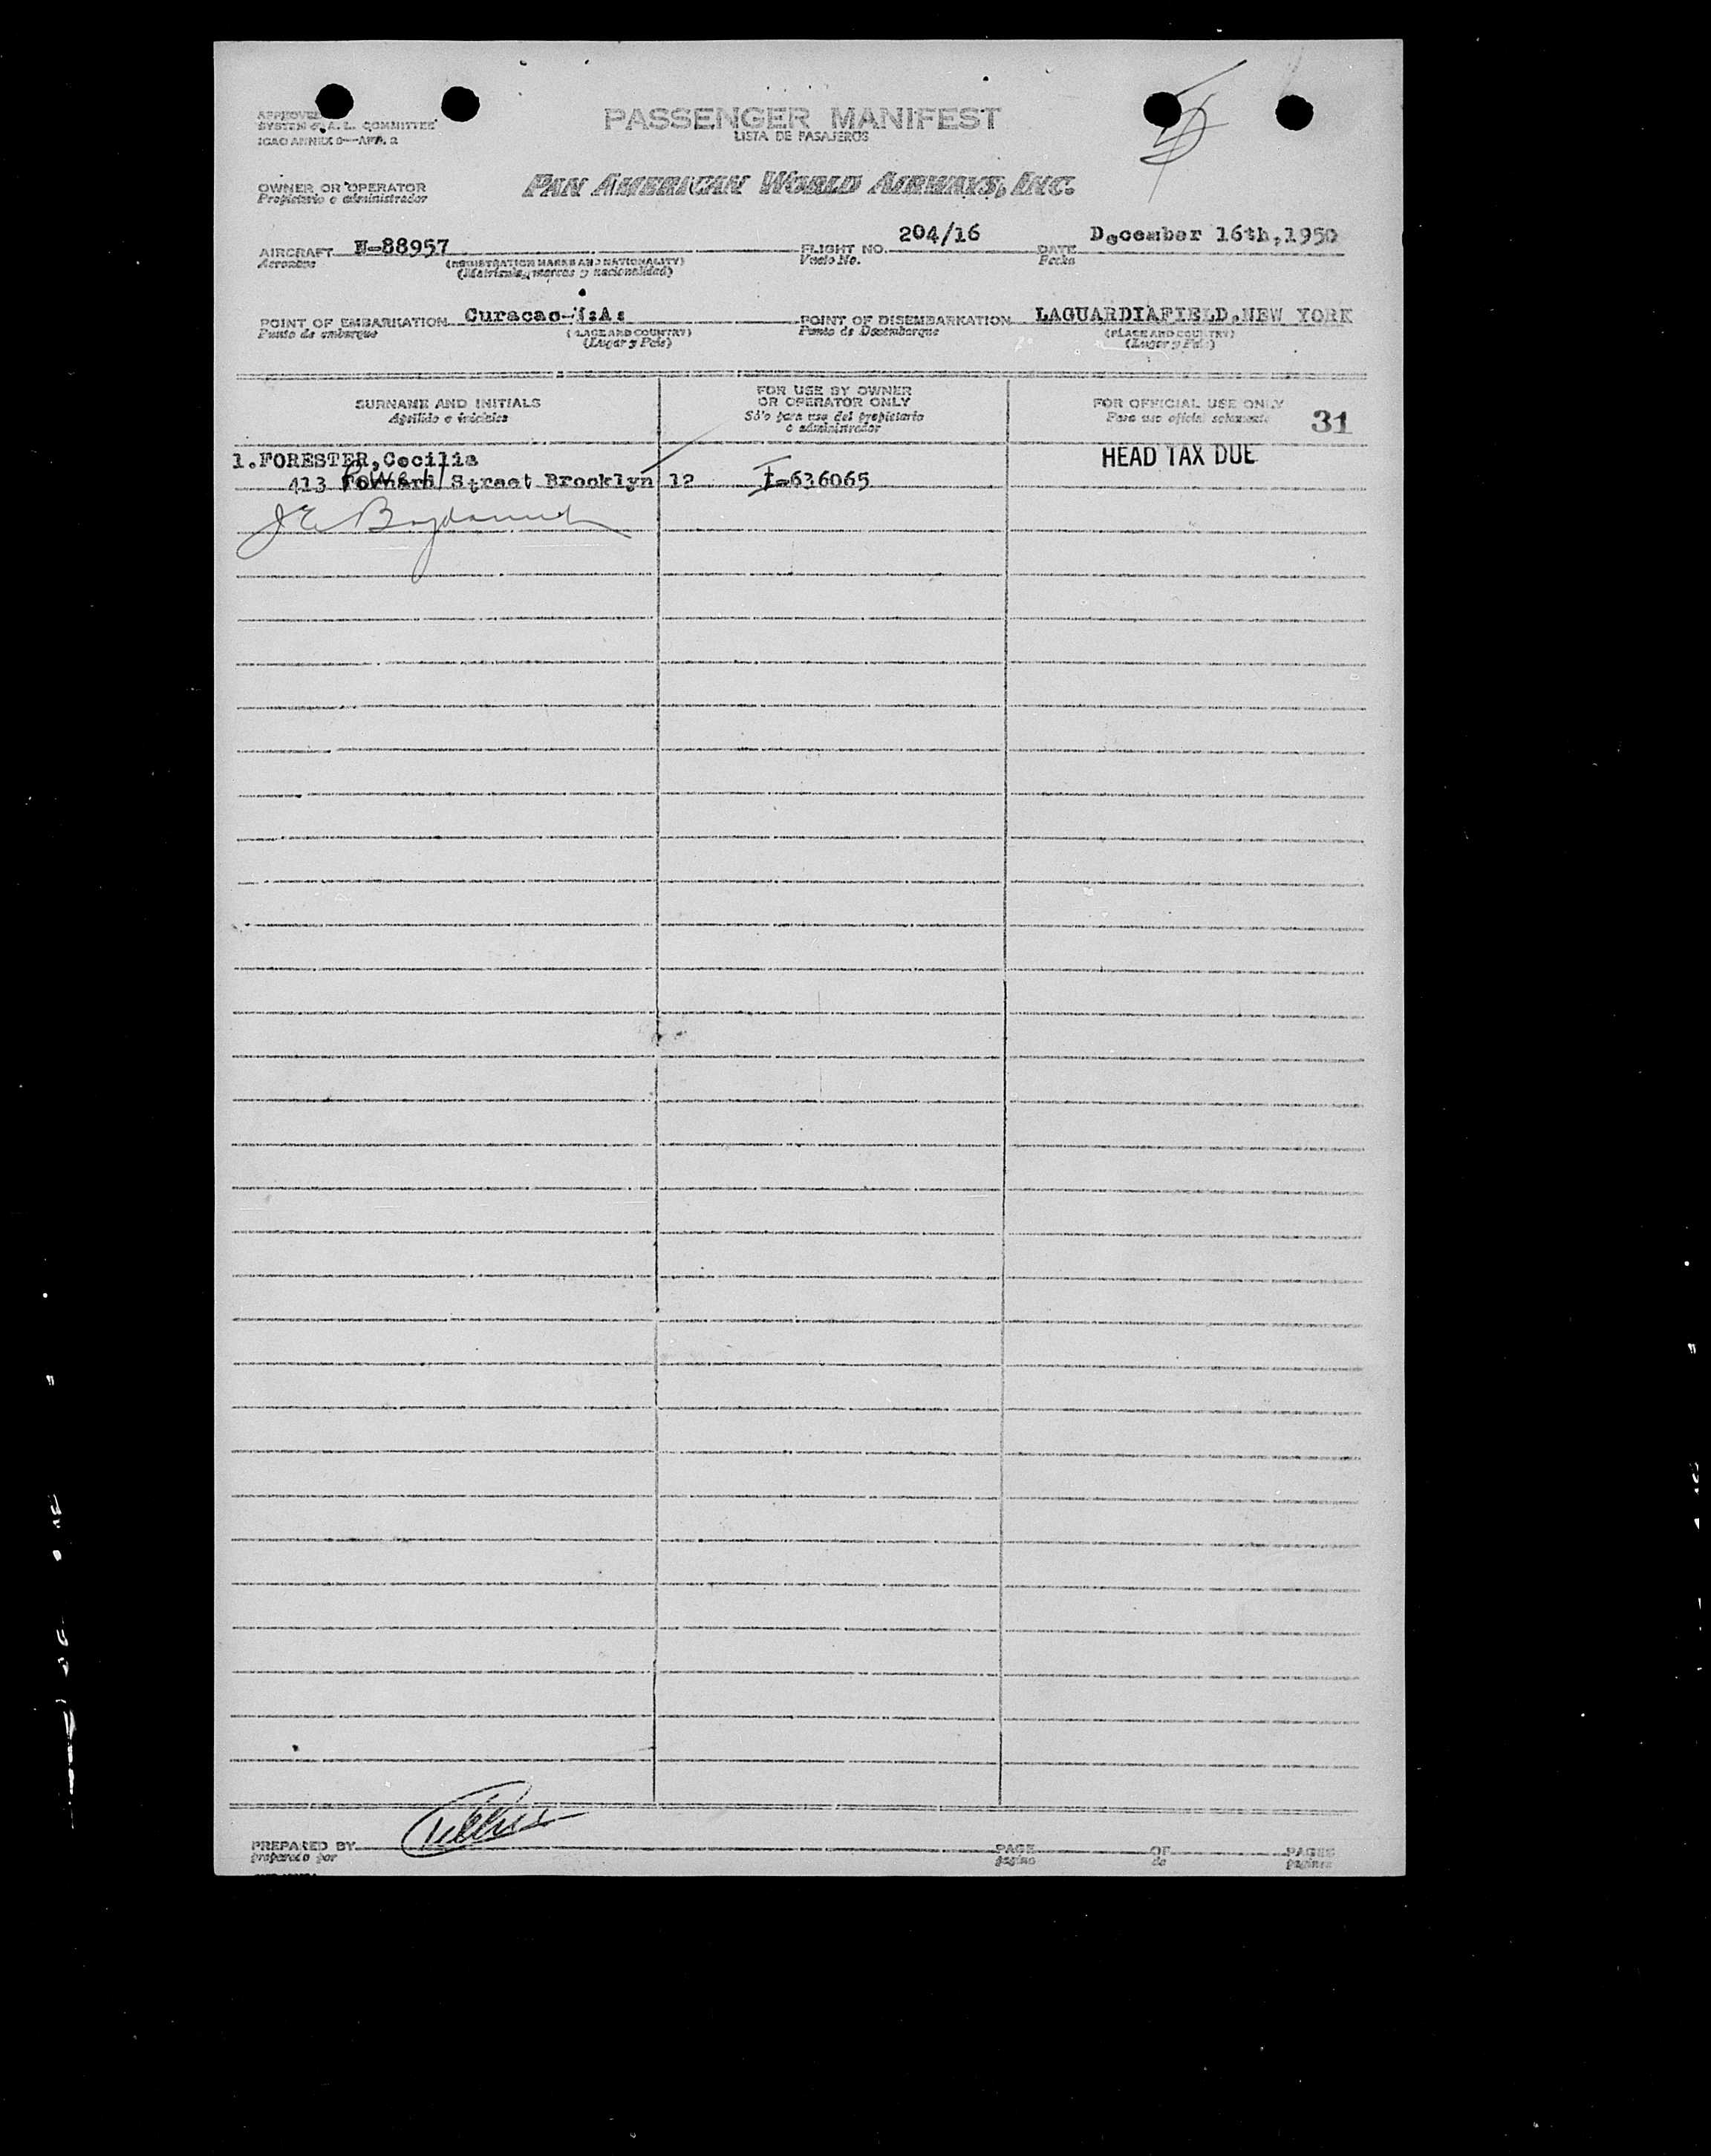 APPROVED
SYSTEM C.A.L. COMMITTEE
ICAO ANNEX 9—APP. 2
PASSENGER MANIFEST
LISTA DE PASAJEROS
OWNER OR OPERATOR
Propietario o administrador
PAN AMERICAN WORLD AIRWAYS, INC.
AIRCRAFT N-88957 FLIGHT NO. 204/16 DATE December 16th,1950
Aeronave (REGISTRATION MARKS AND NATIONALITY) Vuelo No. Fecha
(Matricula, marcas y nacionalidad)
POINT OF EMBARKATION Curacao- POINT OF DISEMBARKATION LAGUARDIAFIELD,NEW YORK
Punto de embarque (PLACE AND COUNTRY) Punto de Desembarque (PLACE AND COUNTRY)
(Lugar y Pais) (Lugar y Pais)
SURNAME AND INITIALS
Apellido e iniciales
FOR USE BY OWNER
OR OPERATOR ONLY
Sólo para uso del propietario
o administrador
FOR OFFICIAL USE ONLY
Para uso oficial solamente
31
1.FORESTER,Cecilia HEAD TAX DUE
413 Powell Street Brooklyn 12 I-636065
PREPARED BY PAGE OF PAGES
preparado por pagina de paginas